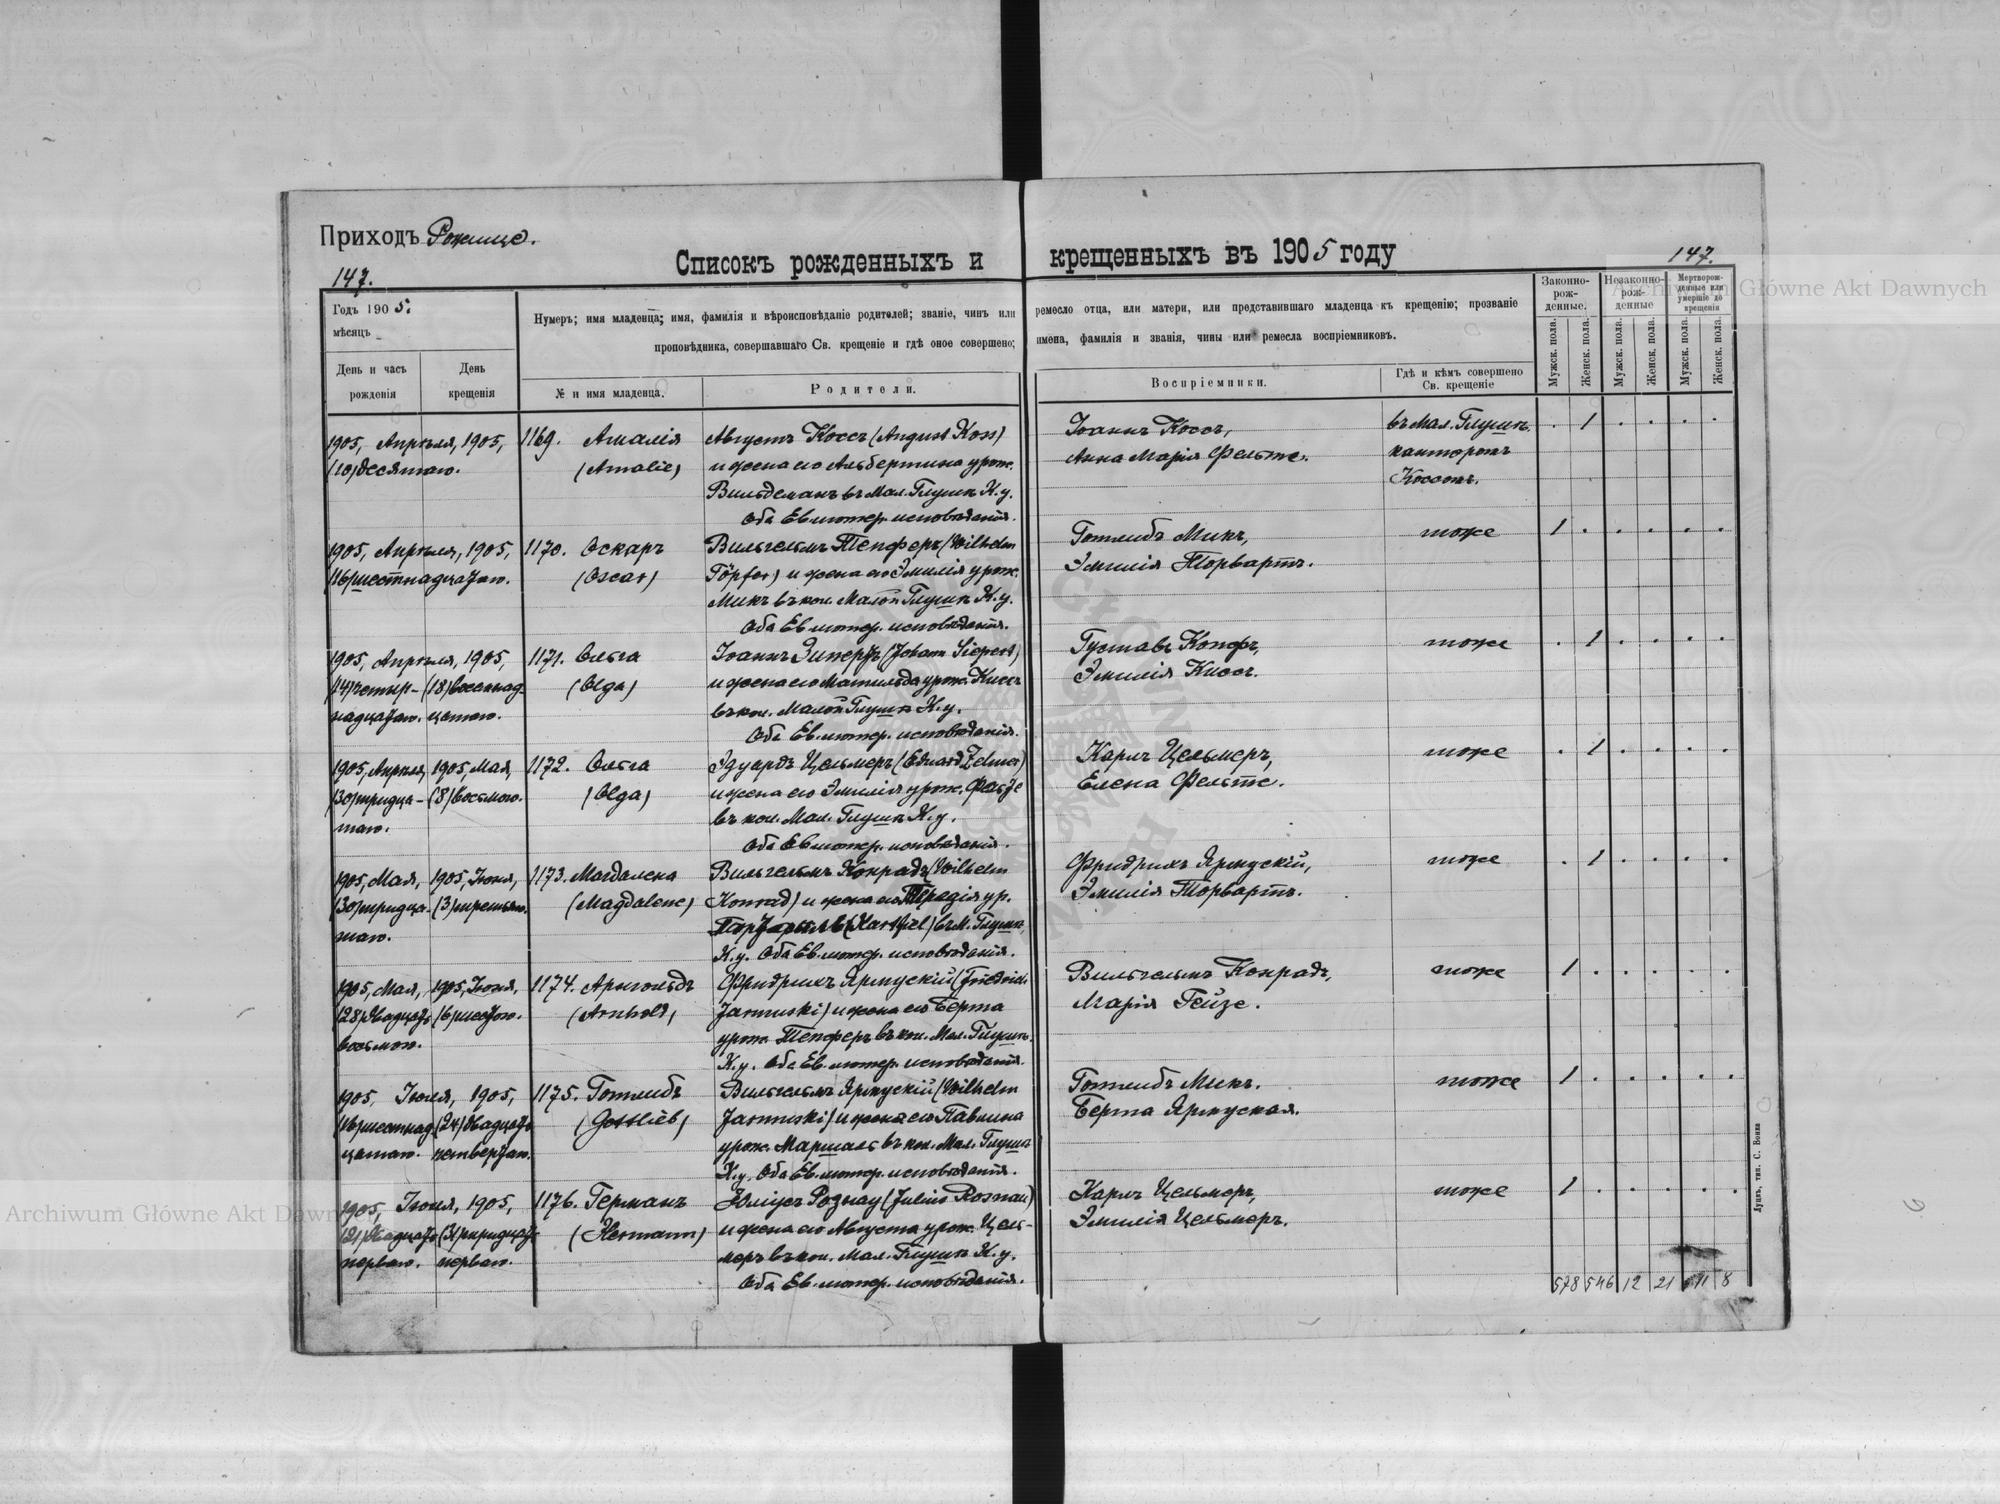 Приходъ Рожище.
147.
Списокъ рожденныхъ и крещенныхъ въ 1905 году
147.
Годъ 1905.
мѣсяцъ
День и часъ рожденія
День крещенія
Нумеръ; имя младенца; имя, фамилія и вѣроисповѣданіе родителей; званіе, чинъ или ремесло отца, или матери, или представившаго младенца къ крещенію; прозваніе
проповѣдника, совершавшаго Св. крещеніе и гдѣ оное совершено; имена, фамилія и званія, чины или ремесла воспріемниковъ.
№ и имя младенца.
Родители.
Воспріемники.
Гдѣ и кѣмъ совершено Св. крещеніе
Законно-рож-денные.
Незаконно-рож-денные
Мертворож-денные или умершіе до крещенія
Мужск. пола.
Женск. пола.
Мужск. пола.
Женск. пола.
Мужск. пола.
Женск. пола.
1905, Апрѣля, 1905,
(10) десятаго.
1169. Амалія
(Amalie)
Августъ Коссъ (August Koss)
и жена его Альбертина урож.
Вильдеманъ въ Мал. Глушѣ К. у.
Оба Ев. лютер. исповѣданія.
Іоаннъ Коссъ,
Анна Марія Фельске.
въ Мал. Глушѣ.
канторомъ
Коссомъ.
. 1 . . . .
1905, Апрѣля, 1905,
(16) шестнадцатаго.
1170. Оскаръ
(Oscar)
Вильгельмъ Тепферъ (Wilhelm
Töpfer) и жена его Эмилія урож.
Микъ въ кол. Малой Глушѣ К. у.
Оба Ев. лютер. исповѣданія.
Готлибъ Микъ,
Эмилія Торвартъ.
тоже
1 . . . . .
1905, Апрѣля, 1905,
(14) четыр- (18) восемнад-
надцатаго. цатаго.
1171. Ольга
(Olga)
Іоаннъ Зипертъ (Johann Siepert)
и жена его Матильда урож. Киссъ
въ кол. Малой Глушѣ К. у.
Оба Ев. лютер. исповѣданія.
Густавъ Копфъ,
Эмилія Киссъ.
тоже
. 1 . . . .
1905, Апрѣля, 1905, Мая,
(30) тридца- (8) восьмого.
таго.
1172. Ольга
(Olga)
Эдуардъ Цельмеръ (Eduard Zelmer)
и жена его Эмилія урож.
въ кол. Мал. Глушѣ К. у.
Оба Ев. лютер. исповѣданія.
Карлъ Цельмеръ,
Елена Фельске.
тоже
. 1 . . . .
1905, Мая, 1905, Іюня,
(30) тридца- (3) третьяго.
таго.
1173. Магдалена
(Magdalene)
Вильгельмъ Конрадъ (Wilhelm
Konrad) и жена его Терезія ур.
въ М. Глушѣ,
К. у. Оба Ев. лютер. исповѣданія.
Фридрихъ Ярмускій,
Эмилія Торвартъ.
тоже
. 1 . . . .
1905, Мая, 1905, Іюня,
(28) двадцать (6) шестаго.
восьмого.
1174. Арнгольдъ
(Arnhold)
Фридрихъ Ярмускій (Friedrich
Jarmuski) и жена его Берта
урож. Тепферъ въ кол. Мал. Глушѣ.
К. у. Оба Ев. лютер. исповѣданія.
Вильгельмъ Конрадъ,
Марія Гейзе.
тоже
1 . . . . .
1905, Іюня, 1905,
(16) шестнад- (24) двадцать
цатаго. четвертаго.
1175. Готлибъ
(Gottlieb)
Вильгельмъ Ярмускій (Wilhelm
Jarmuski) и жена его Павлина
урож. Маршалъ въ кол. Мал. Глушѣ
К. у. Оба Ев. лютер. исповѣданія.
Готлибъ Микъ.
Берта Ярмуская.
тоже
1 . . . . .
1905, Іюня, 1905,
(21) двадцать (31) тридцать
перваго. перваго.
1176. Германъ
(Hermann)
Юліусъ Рознау (Julius Rosnau)
и жена его Августа урож. Цель-
меръ въ кол. Мал. Глушѣ К. у.
Оба Ев. лютер. исповѣданія.
Карлъ Цельмеръ,
Эмилія Цельмеръ.
тоже
1 . . . . .
578 546 12 21 11 8
Луцкъ, тип. С. Бонка
Archiwum Główne Akt Dawnych
Archiwum Główne Akt Dawnych